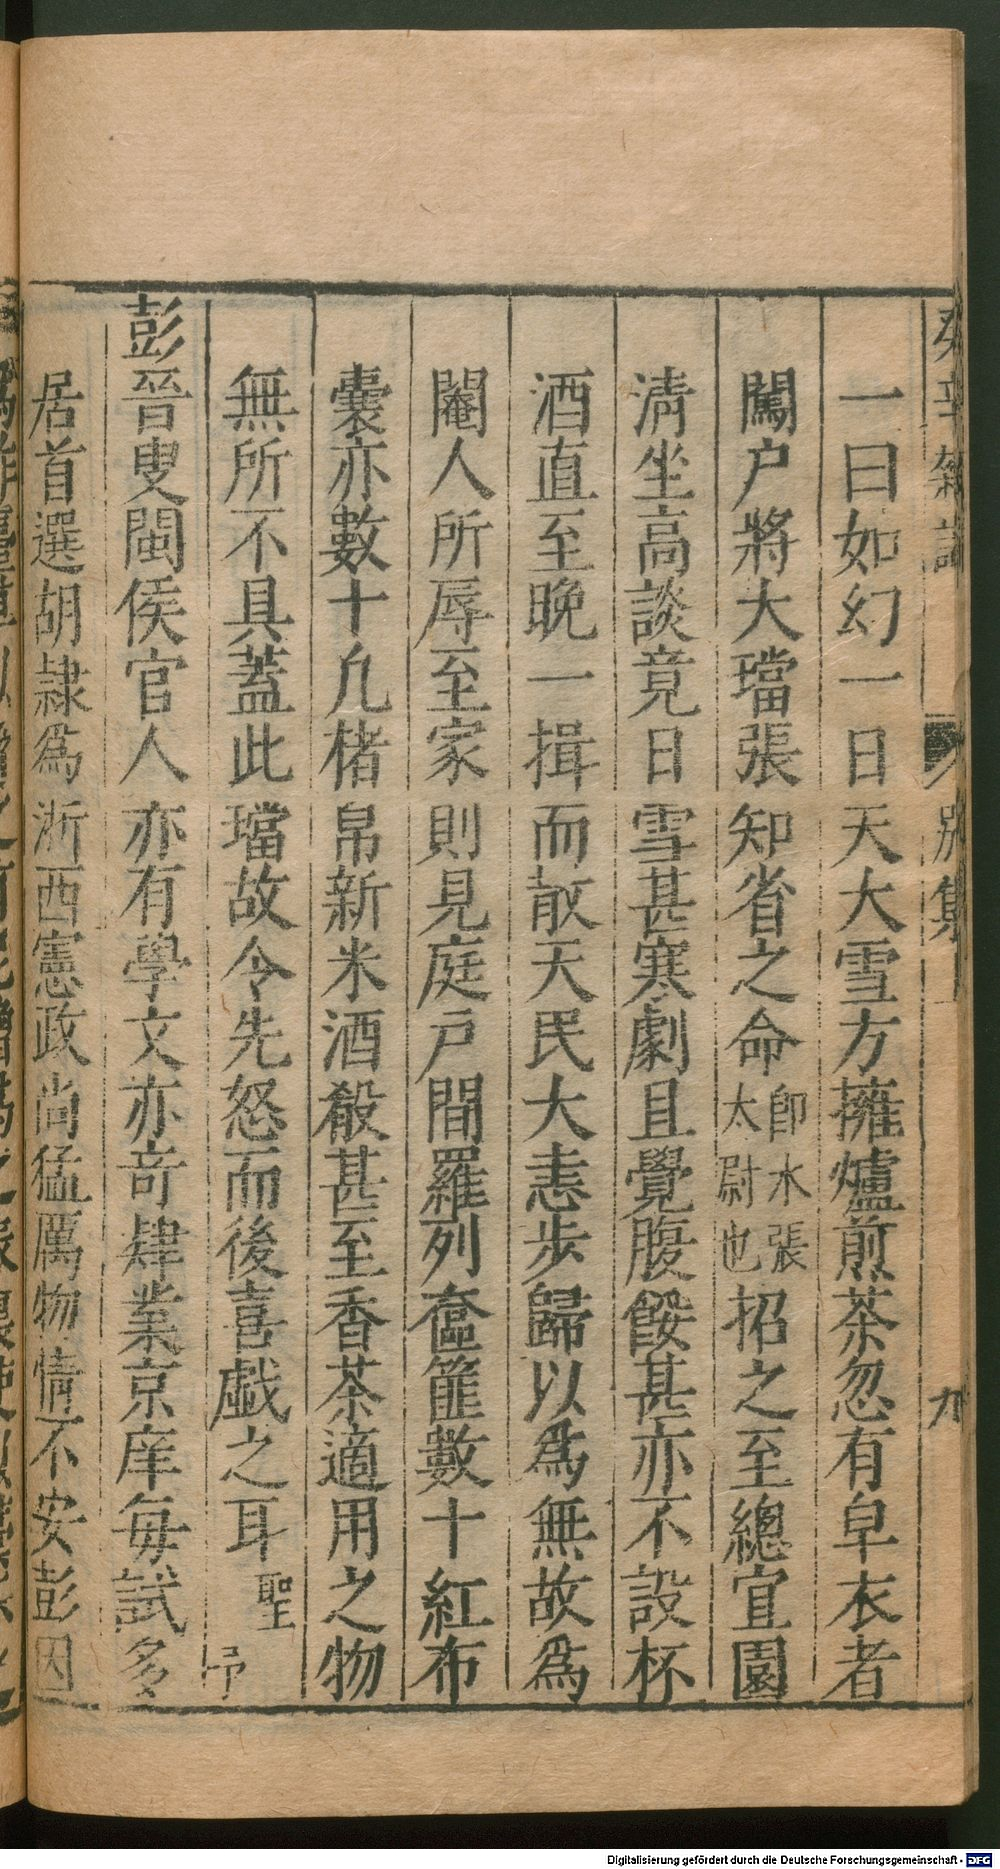 癸辛雜識　別集　九
一曰如幻一日天大雪方擁爐煎茶忽有皁衣者
闖户將大璫張知省之命卽水張太尉也招之至總宜園
清坐高談竟日雪甚寒劇且覺腹餒甚亦不設杯
酒直至晚一揖而散天民大恚步歸以爲無故爲
閹人所辱至家則見庭户間羅列奩篚數十紅布
囊亦數十凡楮帛新米酒殽甚至香茶適用之物
無所不具蓋此璫故令先怒而後喜戯之耳聖予
彭晉叟閩侯官人亦有學文亦竒肆業京庠毎試多
居首選胡隷爲浙西憲政尚猛厲物情不安彭因
Digitalisierung gefördert durch die Deutsche Forschungsgemeinschaft - DFG